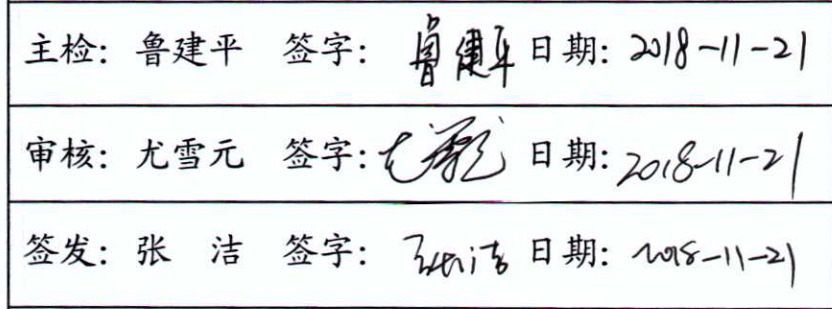 主检：鲁建平 签字：鲁建平 日期：2018-11-21
审核：尤雪元 签字：尤雪元 日期：2018-11-21
签发：张 洁 签字：张洁 日期：2018-11-21